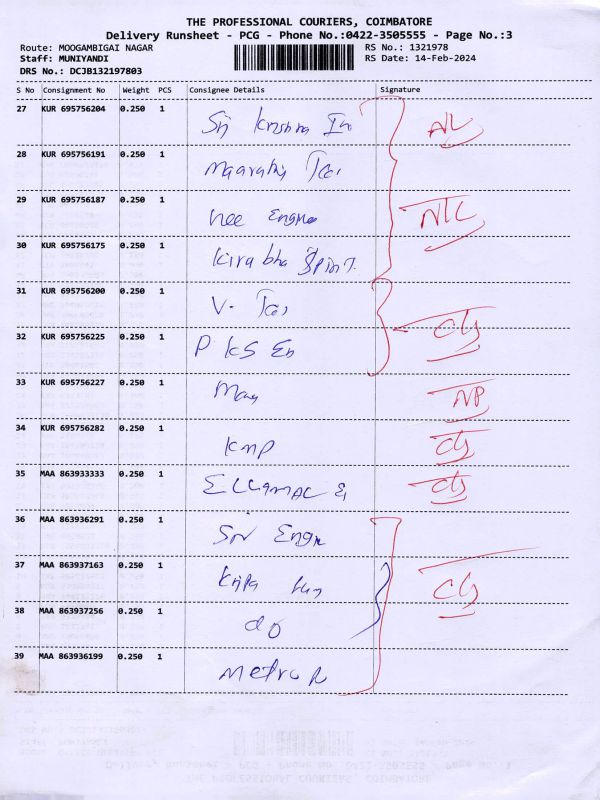 THE PROFESSIONAL COURIERS, COIMBATORE
Delivery Runsheet - PCG - Phone No.:0422-3505555 - Page No.:3
Route: MOOGAMBIGAI NAGAR RS No.: 1321978
Staff: MUNIYANDI RS Date: 14-Feb-2024
DRS No.: DCJB132197803
S No Consignment No Weight PCS Consignee Details Signature
27 KUR 695756204 0.250 1 Sri Krishna
28 KUR 695756191 0.250 1
29 KUR 695756187 0.250 1 nee Engine
30 KUR 695756175 0.250 1 Kirabha
31 KUR 695756200 0.250 1 V.
32 KUR 695756225 0.250 1 P KS En
33 KUR 695756227 0.250 1 NP
34 KUR 695756282 0.250 1 KMP
35 MAA 863933333 0.250 1
36 MAA 863936291 0.250 1
37 MAA 863937163 0.250 1
38 MAA 863937256 0.250 1 do
39 MAA 863936199 0.250 1 Metro